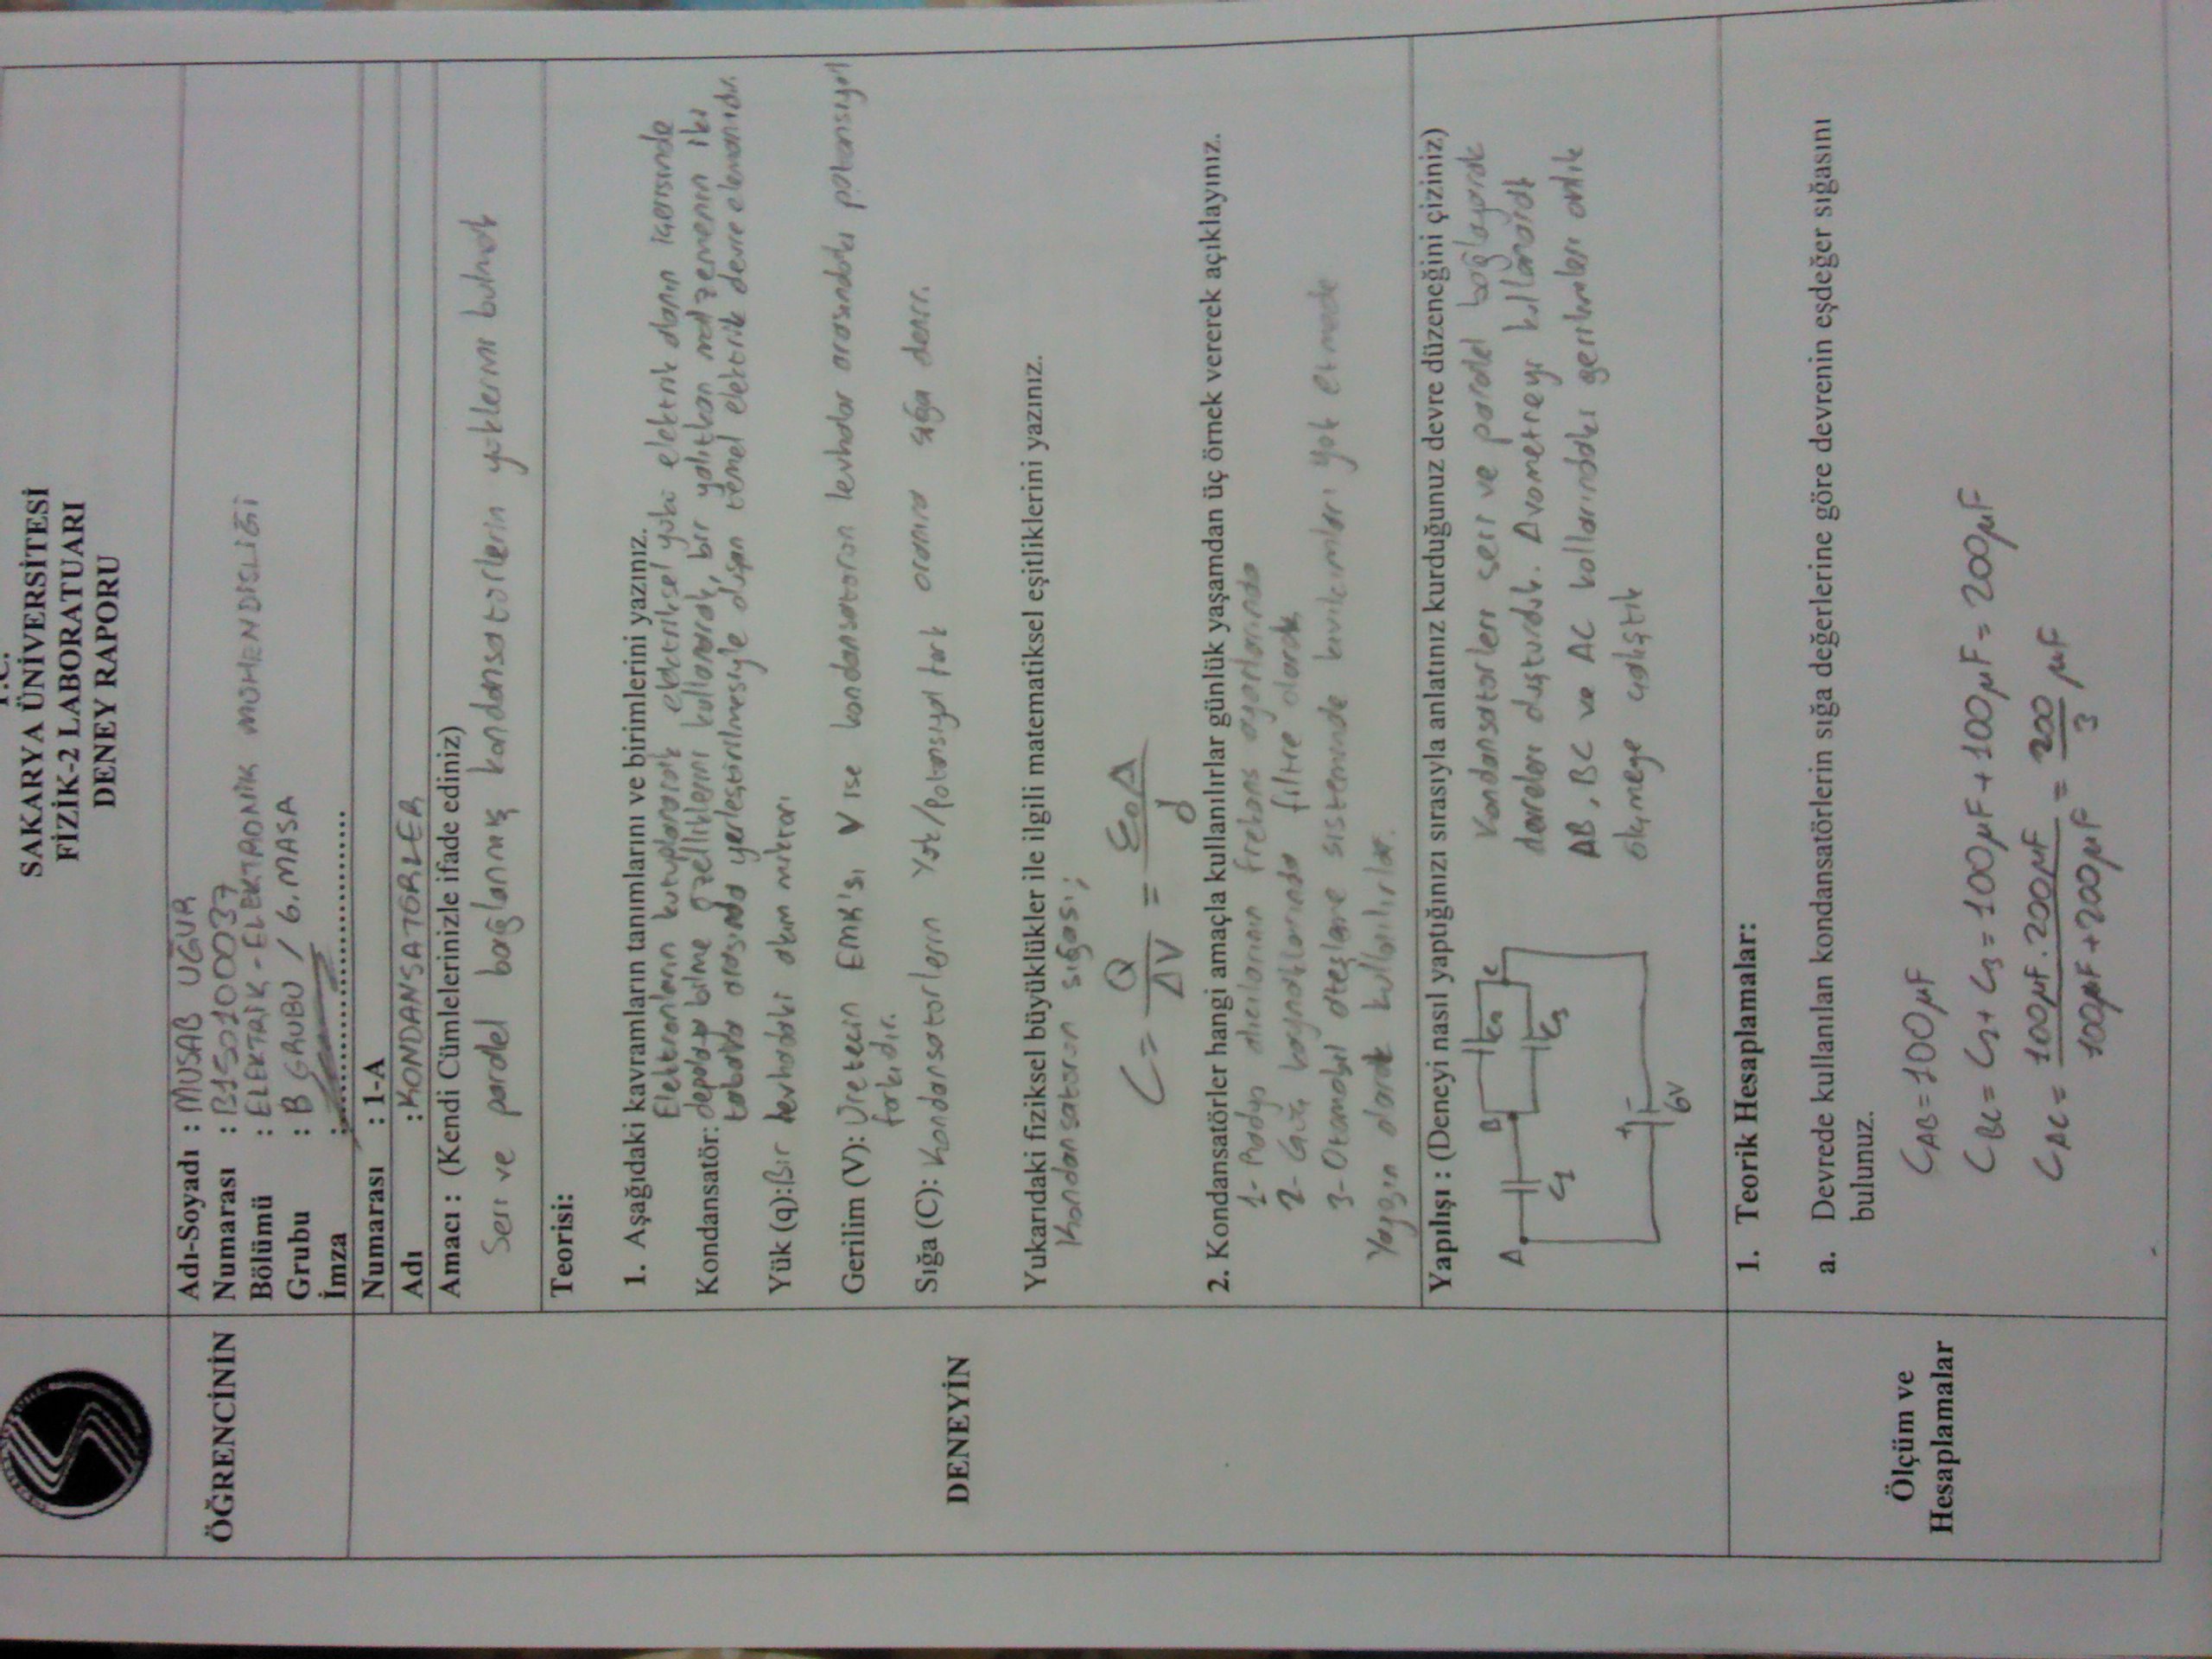 T.C.
SAKARYA ÜNİVERSİTESİ
FİZİK-2 LABORATUARI
DENEY RAPORU
ÖĞRENCİNİN
Adı-Soyadı : MUSAB UĞUR
Numarası : B150100037
Bölümü : ELEKTRİK-ELEKTRONİK MÜHENDİSLİĞİ
Grubu : B GRUBU / 6. MASA
İmza :
DENEYİN
Numarası : 1-A
Adı : KONDANSATÖRLER
Amacı : (Kendi Cümlelerinizle ifade ediniz)
Seri ve paralel bağlanmış kondansatörlerin yüklerini bulmak
Teorisi:
1. Aşağıdaki kavramların tanımlarını ve birimlerini yazınız.
Elektronların kutuplanarak elektriksel yükü elektrik alanın içerisinde
Kondansatör: depolayabilme özelliklerini kullanarak, bir yalıtkan malzemenin iki
tabaka arasında yerleştirilmesiyle oluşan temel elektrik devre elemanıdır.
Yük (q): Bir levhadaki akım miktarı
Gerilim (V): Üretecin EMK'sı, V ise kondansatörün levhalar arasındaki potansiyel
farkıdır.
Sığa (C): Kondansatörlerin Yük/potansiyel fark oranına sığa denir.
Yukarıdaki fiziksel büyüklükler ile ilgili matematiksel eşitliklerini yazınız.
Kondansatörün sığası;
C = Q/ΔV = ε₀A/d
2. Kondansatörler hangi amaçla kullanılırlar günlük yaşamdan üç örnek vererek açıklayınız.
1- Radyo alıcılarının frekans ayarlarında
2- Güç kaynaklarında filtre olarak
3- Otomobil ateşleme sisteminde kıvılcımları yok etmede
Yaygın olarak kullanılırlar.
Yapılışı : (Deneyi nasıl yaptığınızı sırasıyla anlatınız kurduğunuz devre düzeneğini çiziniz)
A B C2 C
C1 C3
6V
Kondansatörleri seri ve paralel bağlayarak
devreleri oluşturduk. Avometreyi kullanarak
AB, BC ve AC kollarındaki gerilimleri
ölçmeye çalıştık
Ölçüm ve
Hesaplamalar
1. Teorik Hesaplamalar:
a. Devrede kullanılan kondansatörlerin sığa değerlerine göre devrenin eşdeğer sığasını
bulunuz.
CAB = 100 µF
CBC = C2 + C3 = 100 µF + 100 µF = 200 µF
CAC = 100µF . 200µF / 100µF + 200µF = 200/3 µF